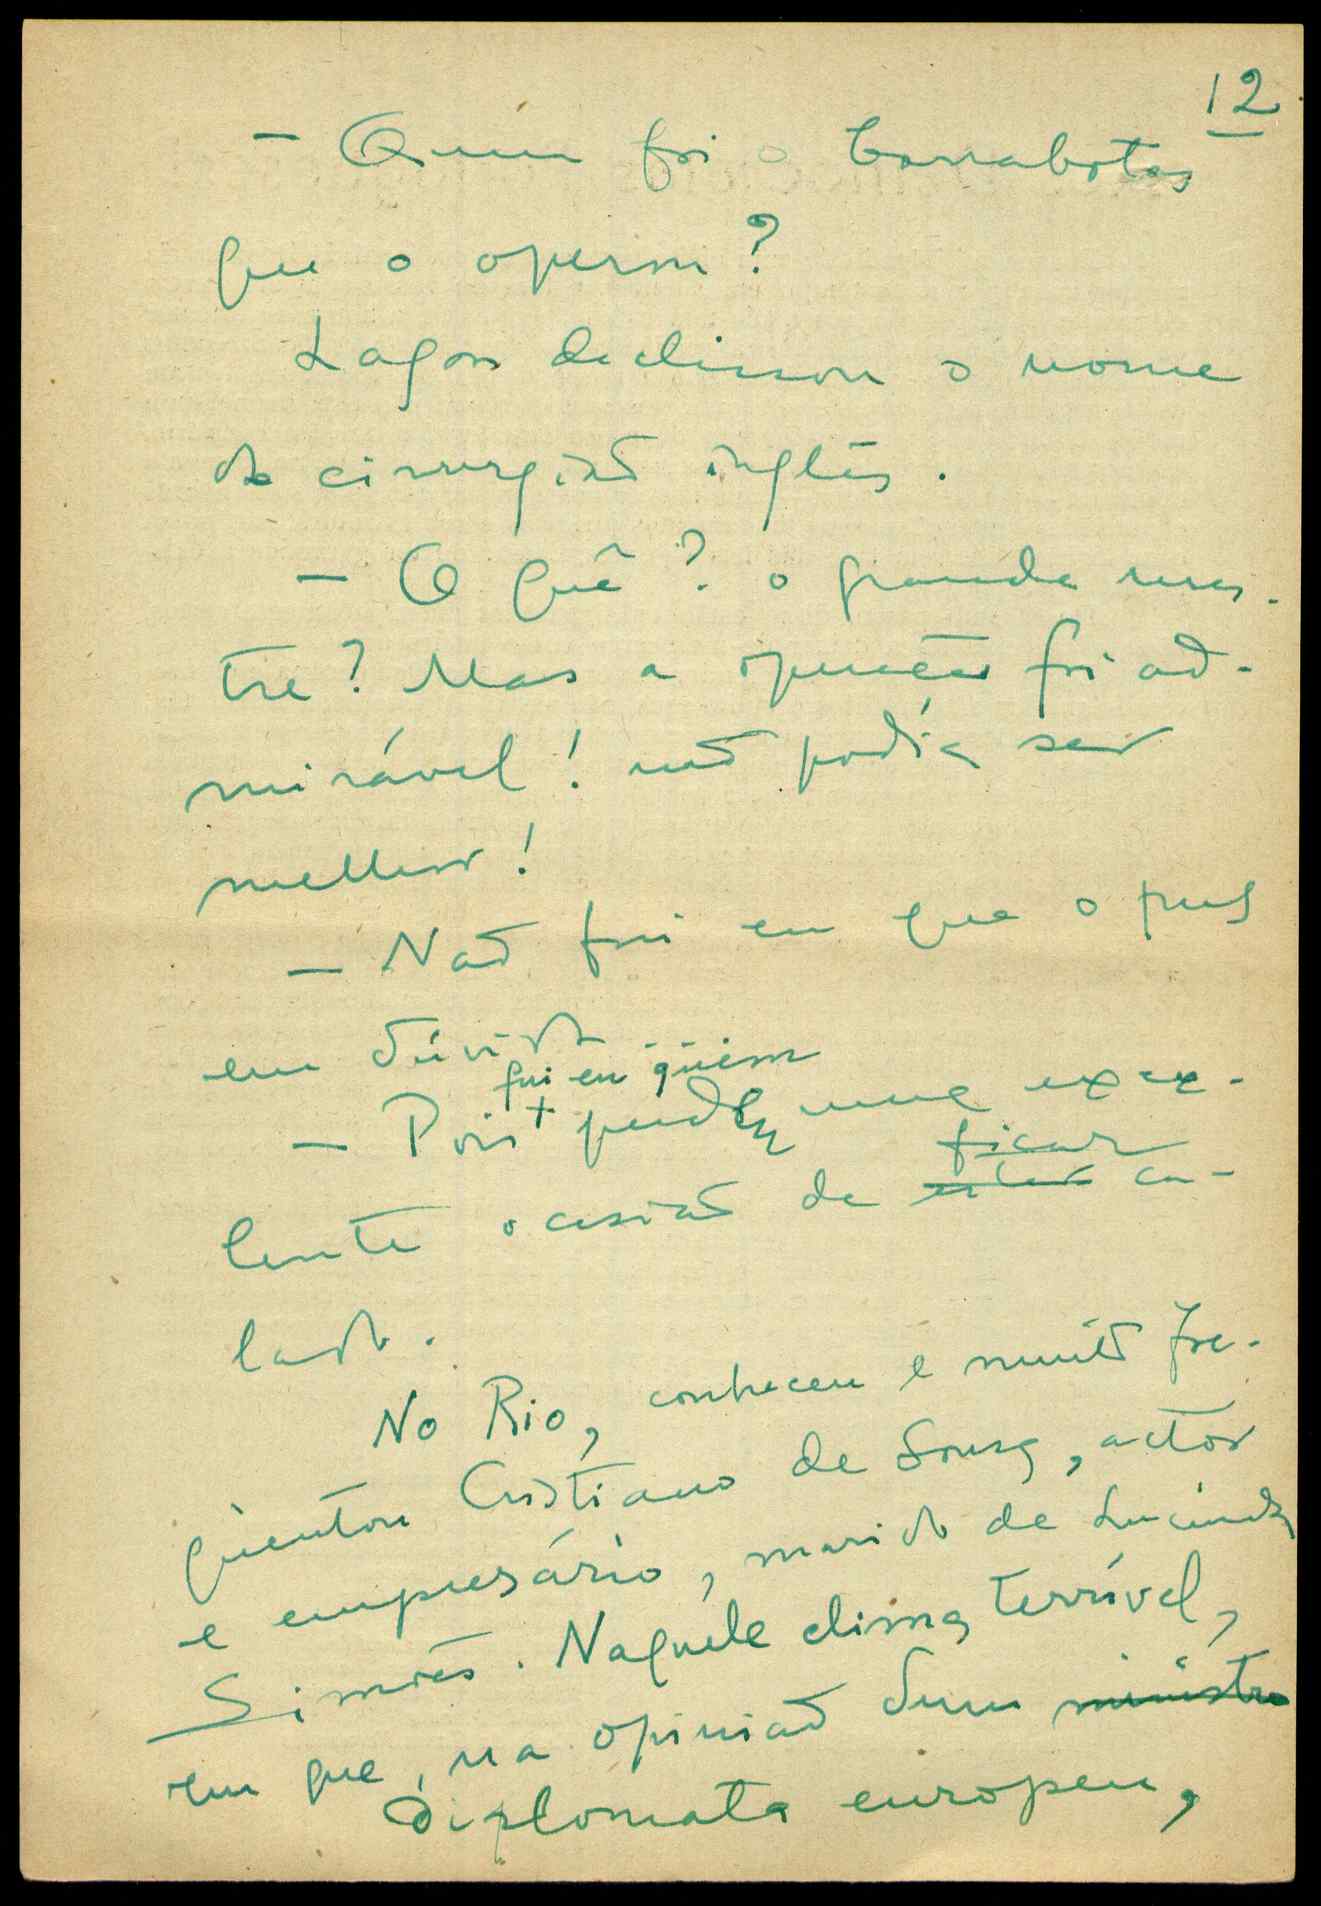 12
— Quem foi o borrabotas
que o operou?
Lagos declinou o nome
do cirurgião inglês.
— O quê? o grande mes-
tre? Mas a operação foi ad-
mirável! não podia ser
melhor!
— Não fui eu que o pus
em dúvida.
fui eu quem
— Pois + perdeu uma exce-
ficar
lente ocasião de estar ca-
lado.
No Rio, conheceu e muito fre-
qùentou Cristiano de Sousa, actor
e empresário, marido de Lucinda
Simões. Naquele clima terrível,
em que, na opinião dum ministro
diplomata europeu,